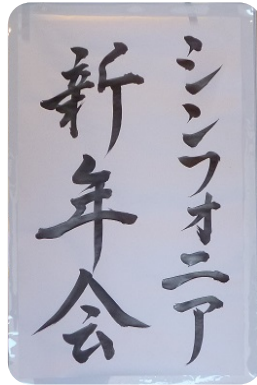 シンフォニア
新年会